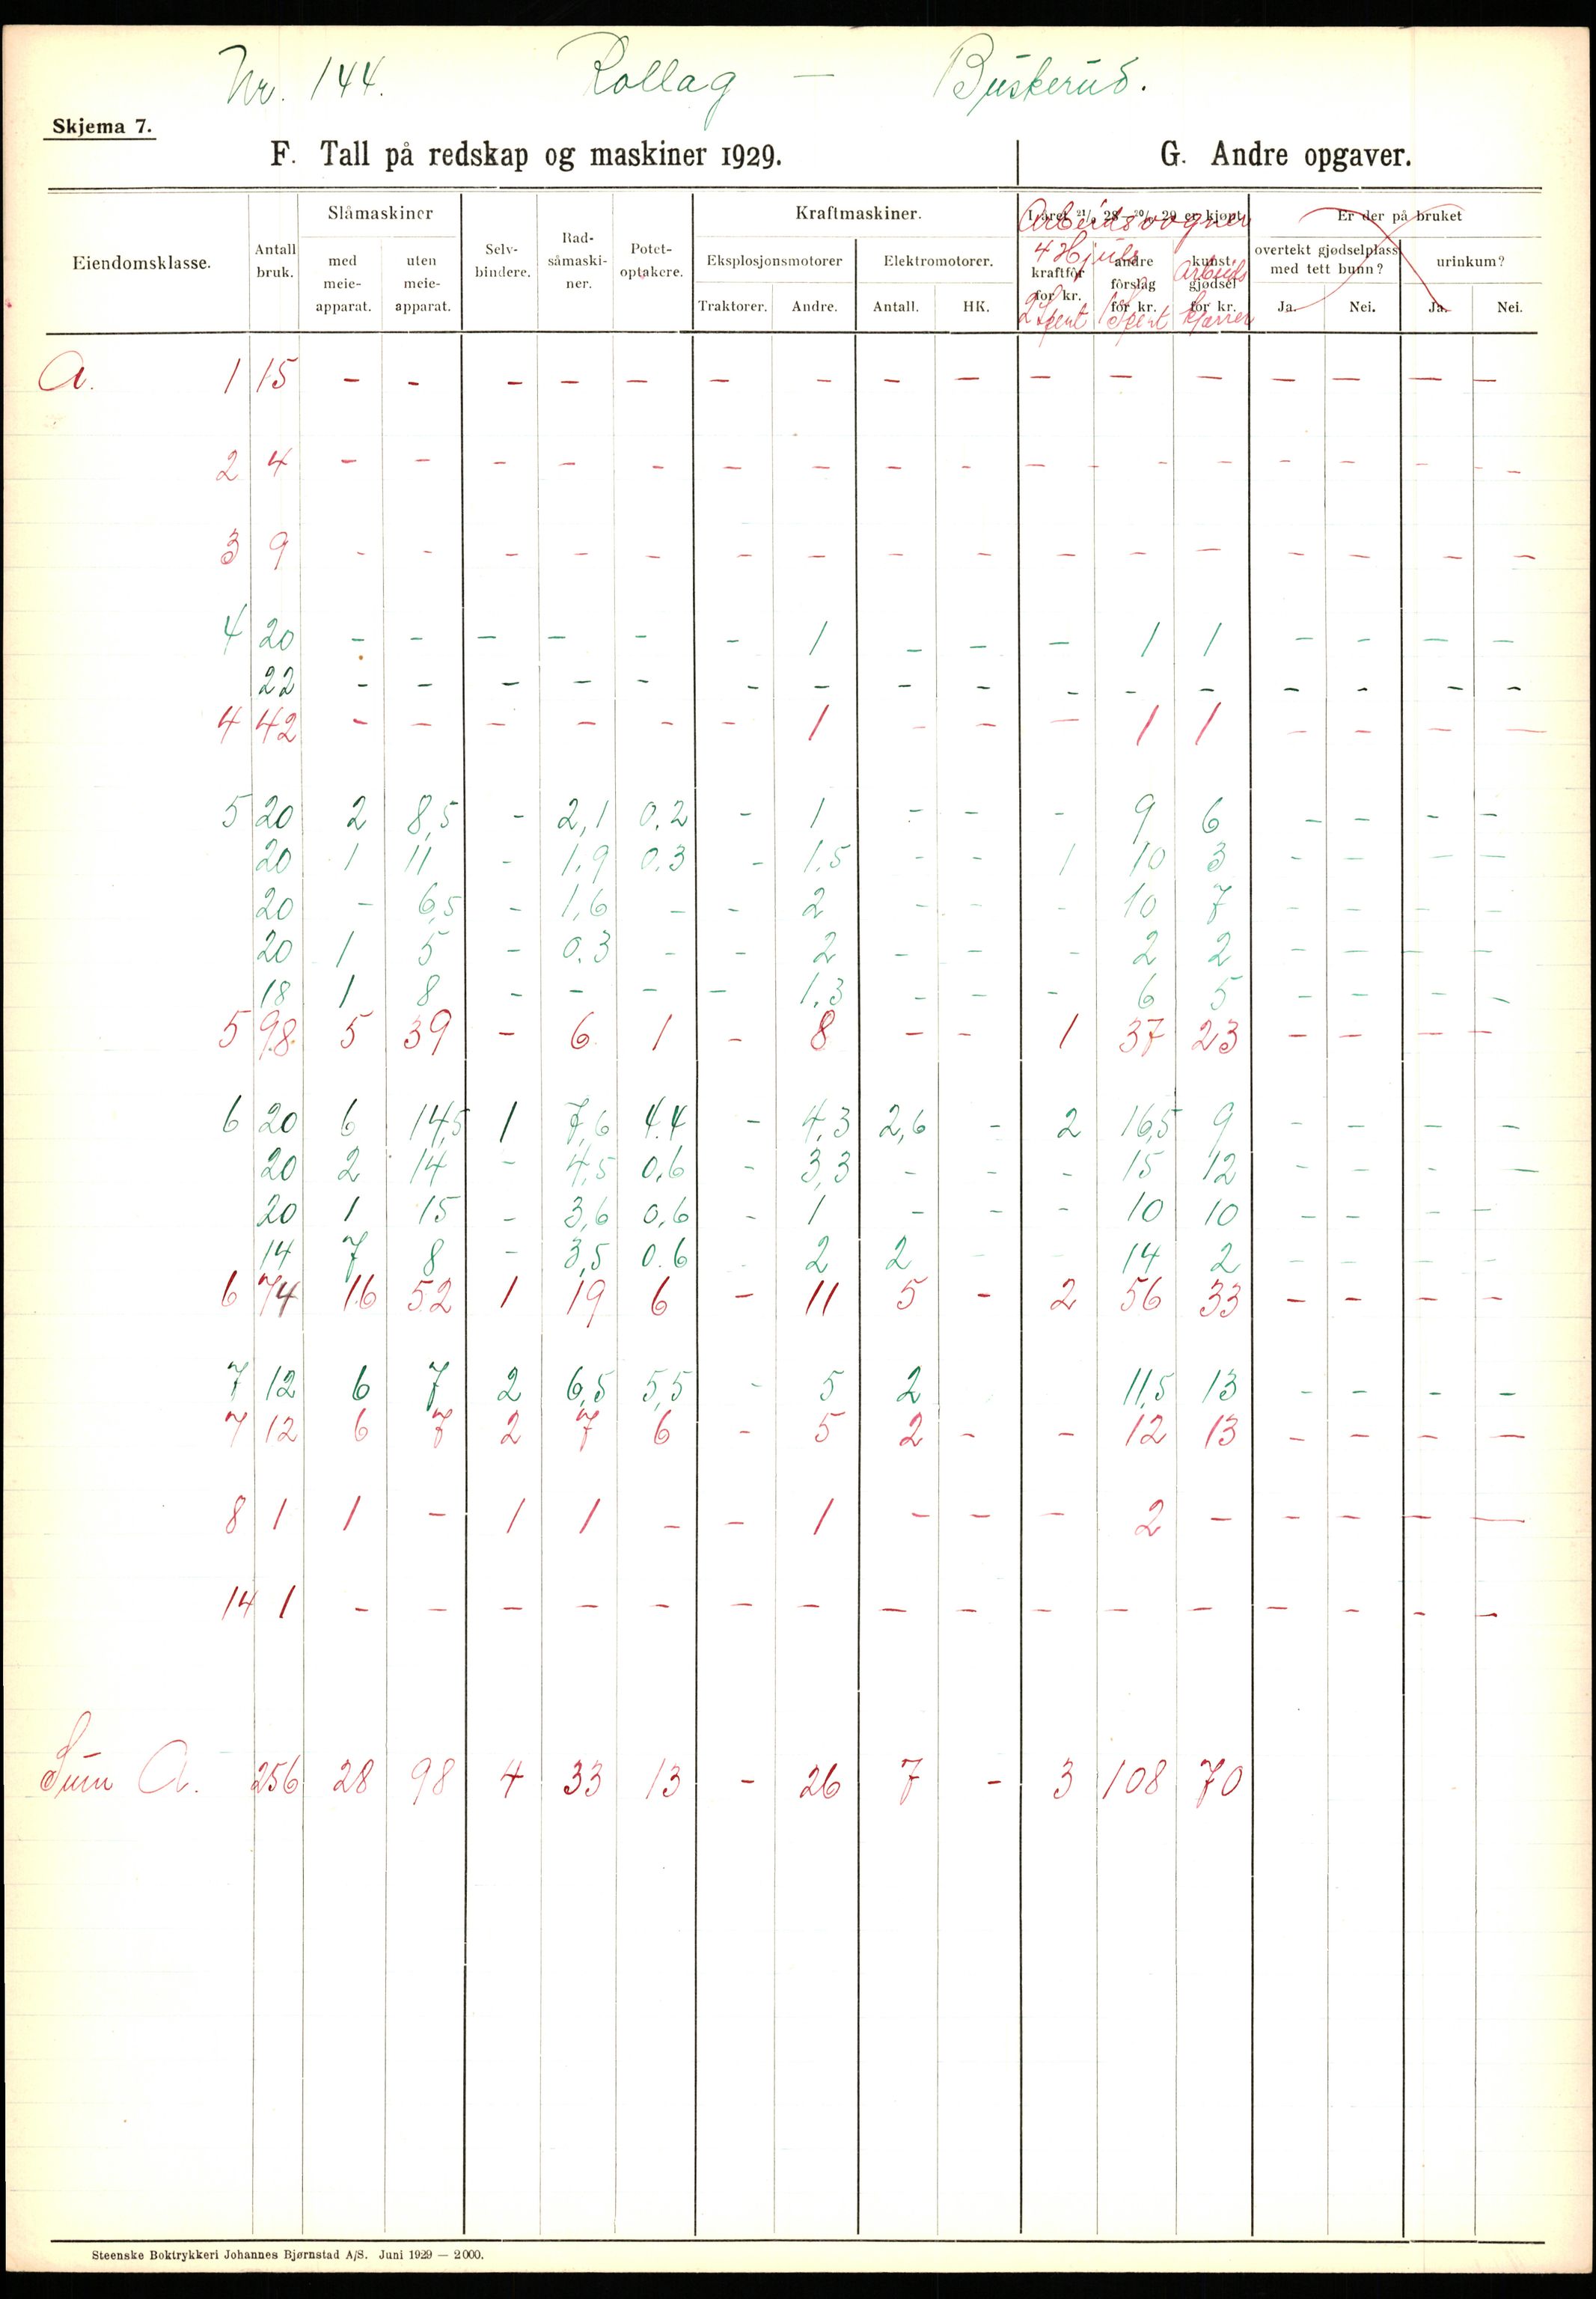 Nr. 144. Rollag — Buskerud.
Skjema 7.
F. Tall på redskap og maskiner 1929. G. Andre opgaver.
Eiendomsklasse. Antall bruk. Slåmaskiner med meie-apparat. uten meie-apparat. Selv-bindere. Rad-såmaski-ner. Potet-optakere. Kraftmaskiner. Eksplosjonsmotorer Traktorer. Andre. Elektromotorer. Antall. HK. I året 21/ 28 - 20/ 29 er kjøpt kraftfôr for kr. andre fôrslag for kr. kunst-gjødsel for kr. Er der på bruket overtekt gjødselplass med tett bunn? Ja. Nei. urinkum? Ja. Nei.
Arbeidsvogner
4 Hjuls Arbeids
2 Spent 1 Spent kjærrer
A. 1 15 - - - - - - - - - - - - - - - -
2 4 - - - - - - - - - - - - - - - -
3 9 - - - - - - - - - - - - - - - -
4 20 - - - - - - 1 - - - 1 1 - - - -
22 - - - - - - - - - - - - - - - -
4 42 - - - - - - 1 - - - 1 1 - - - -
5 20 2 8,5 - 2,1 0.2 - 1 - - - 9 6 - - - -
20 1 11 - 1,9 0.3 - 1.5 - - 1 10 3 - - - -
20 - 6,5 - 1,6 - - 2 - - - 10 7 - - - -
20 1 5 - 0.3 - - 2 - - - 2 2 - - - -
18 1 8 - - - - 1.3 - - - 6 5 - - - -
5 98 5 39 - 6 1 - 8 - - 1 37 23 - - - -
6 20 6 14,5 1 7,6 4.4 - 4.3 2,6 - 2 16,5 9 - - - -
20 2 14 - 4,5 0.6 - 3,3 - - - 15 12 - - - -
20 1 15 - 3,6 0,6 - 1 - - - 10 10 - - - -
14 7 8 - 3,5 0.6 - 2 2 - - 14 2 - - - -
6 74 16 52 1 19 6 - 11 5 - 2 56 33 - - - -
7 12 6 7 2 6,5 5,5 - 5 2 11,5 13 - - - -
7 12 6 7 2 7 6 - 5 2 - - 12 13 - - - -
8 1 1 - 1 1 - - 1 - - - 2 - - - - -
14 1 - - - - - - - - - - - - - - - -
Sum A. 256 28 98 4 33 13 - 26 7 - 3 108 70
Steenske Boktrykkeri Johannes Bjørnstad A/S. Juni 1929 — 2000.